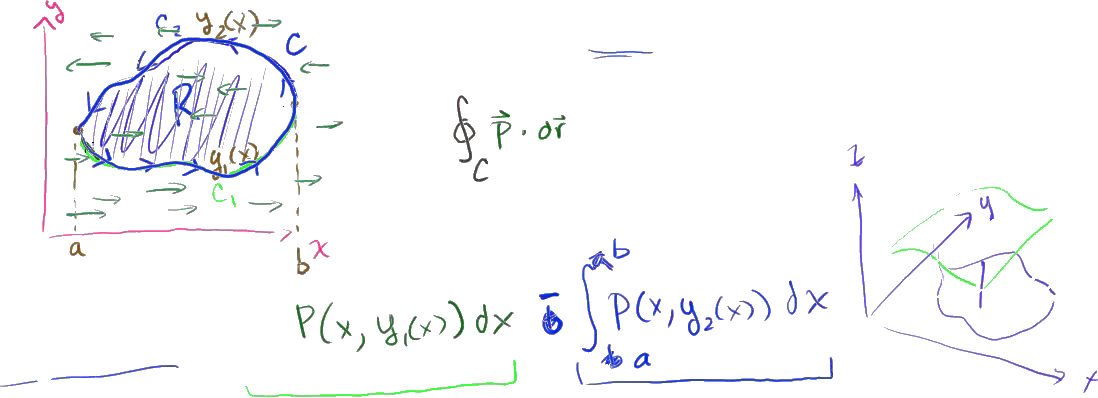 y
C₂ y₂(x)
C
R
y₁(x)
C₁
a
b
x
∮_C P⃗ · dr⃗
P(x, y₁(x)) dx - ∫_a^b P(x, y₂(x)) dx
z
y
x